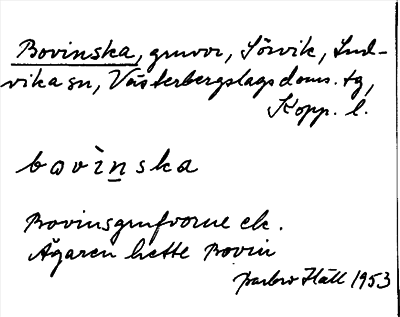 Bovinska, gruvor, Sörvik, Lud-
vika sn, Västerbergslags doms. tg,
Kopp. l.
bovìnska
Bovinsgrufvorne ek.
Ägaren hette Bovin
Barbro Häll 1953